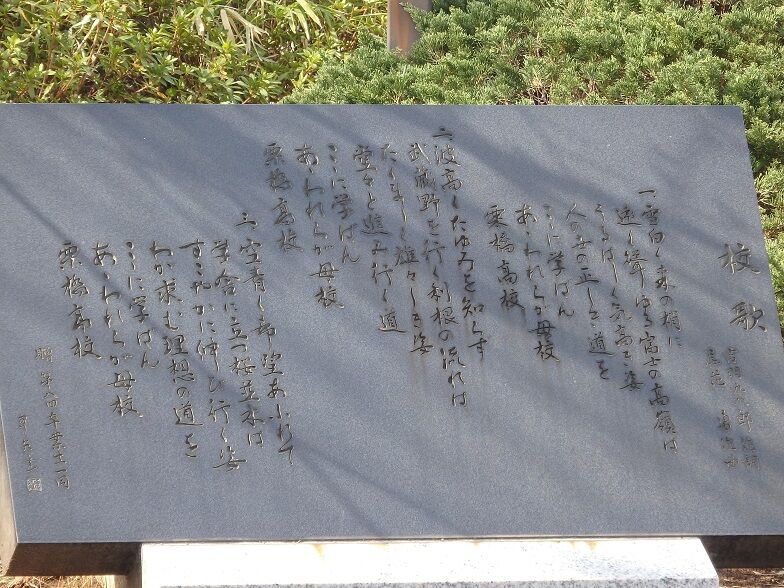 校歌
一、雪白く東の村に
遠く聳ゆる富士の高嶺は
うるはしく気高き姿
人の世の正しき道を
ここに学ばん
あゝわれらが母校
栗橋高校
二、波高くたゆるを知らず
武蔵野を行く利根の流れは
たくましく雄々しき姿
堂々と進み行く道
ここに学ばん
あゝわれらが母校
栗橋高校
三、空青く希望あふれて
学舎に立つ桜並木は
すこやかに伸び行く姿
わが求む理想の道を
ここに学ばん
あゝわれらが母校
栗橋高校
贈 第八回卒業生一同